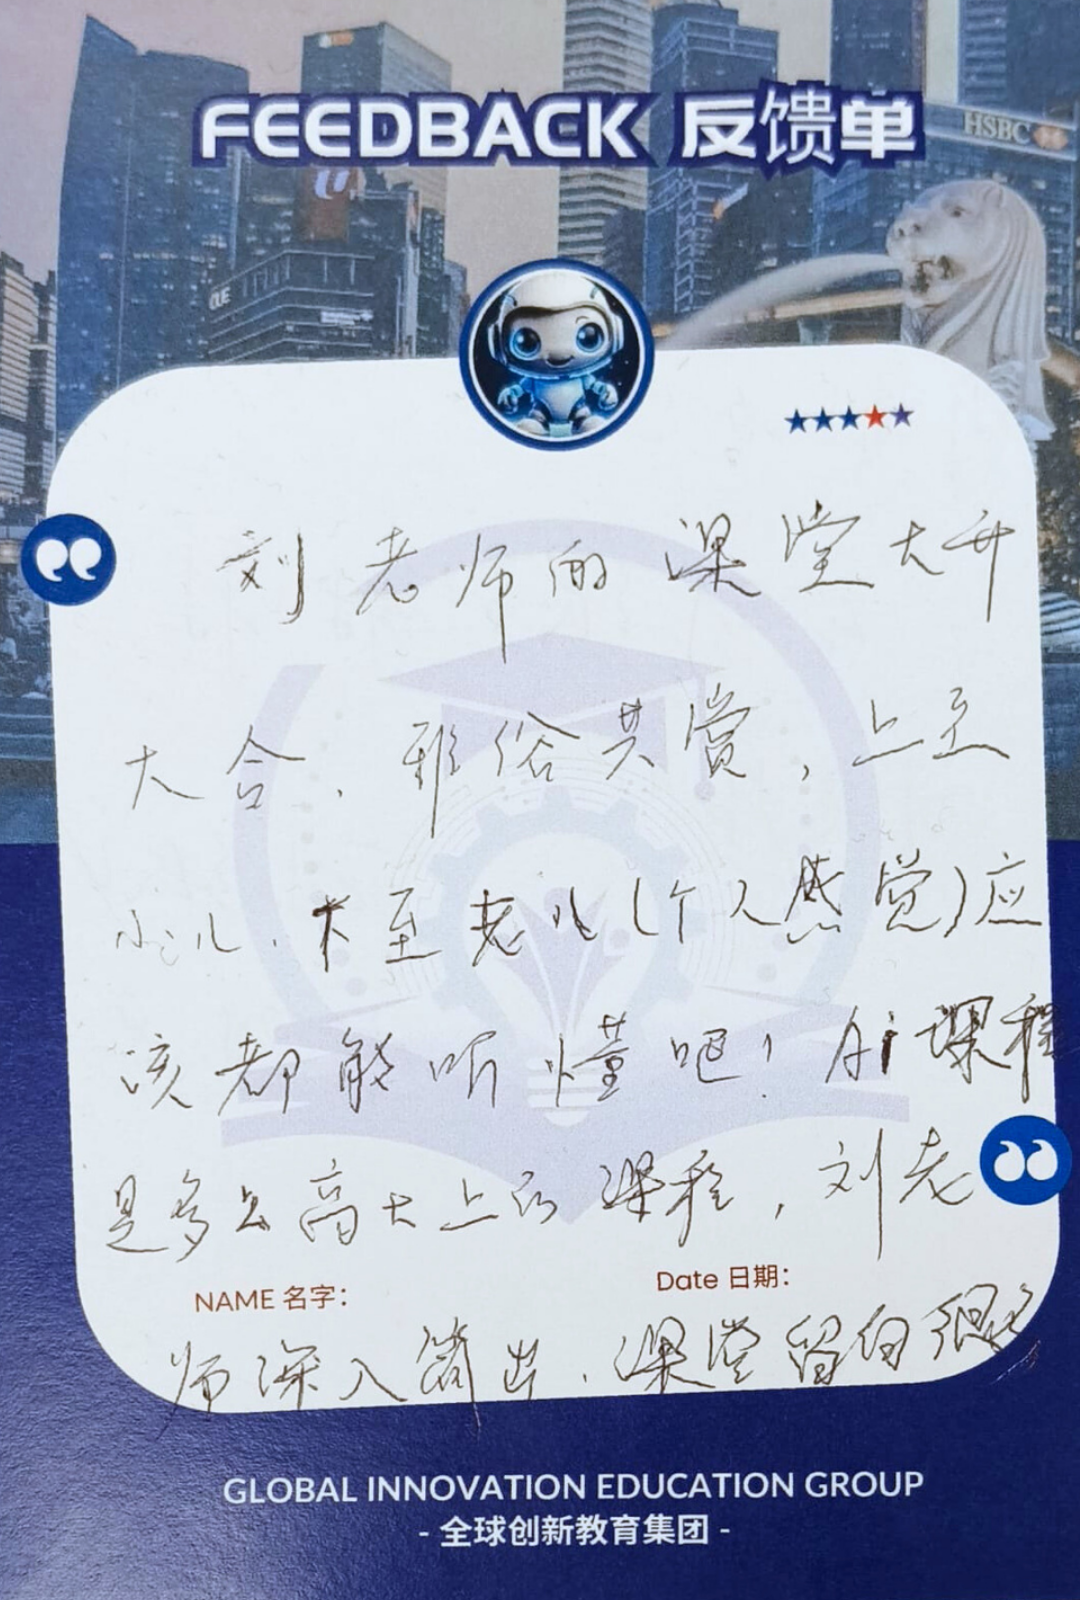 FEEDBACK 反馈单
HSBC
OUE
刘老师的课堂大开
大合,雅俗共赏,上至
小儿,下至老儿(个人感觉)应
该都能听懂吧!Ai课程
是多么高大上的课程,刘老
NAME 名字:
Date 日期:
师深入简出,课堂留白很多
GLOBAL INNOVATION EDUCATION GROUP
- 全球创新教育集团 -